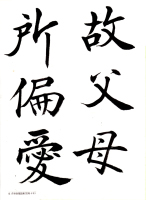 故父母
所偏愛